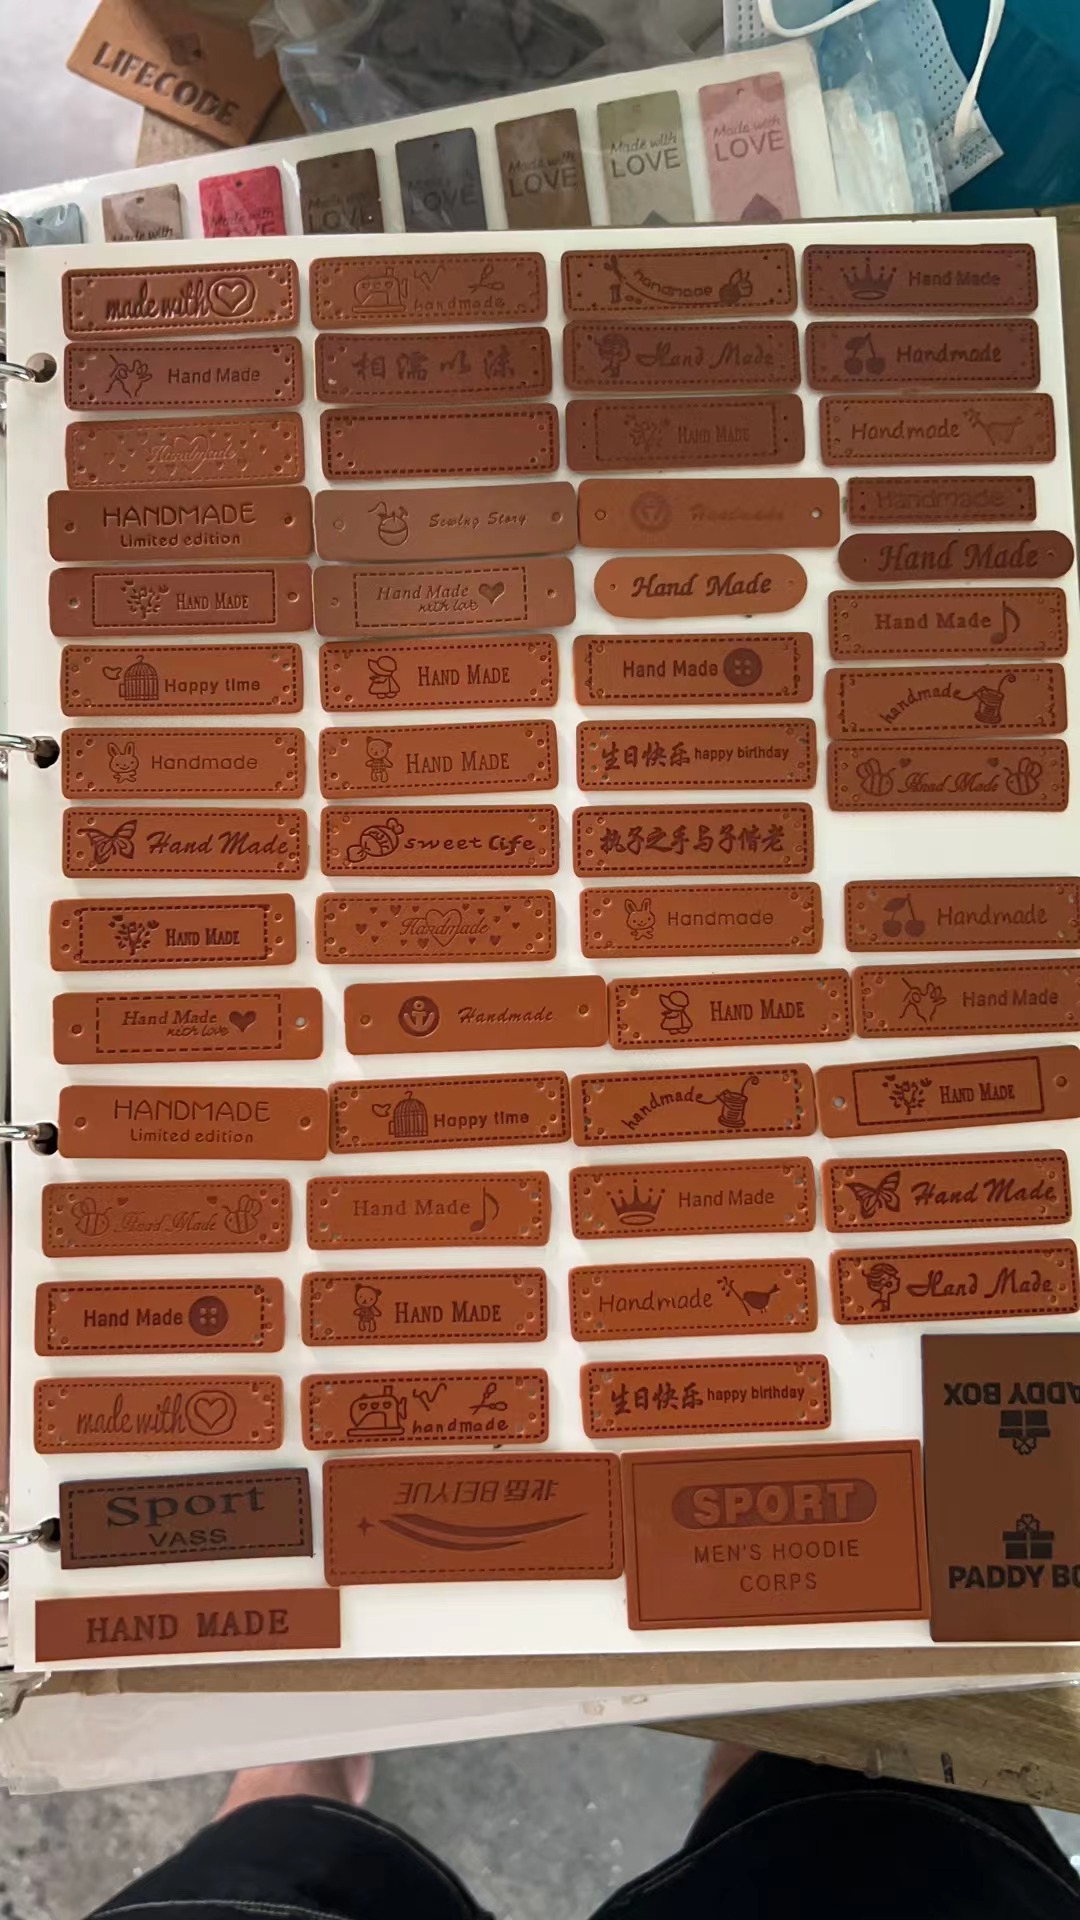 LIFECODE
Made with
Made with
LOVE
Made with
LOVE
Made with
LOVE
Made with
LOVE
Made with
LOVE
Made with
LOVE
made with
handmade
handmade
Hand Made
Hand Made
相濡以沫
Hand Made
Handmade
Handmade
HAND MADE
Handmade
HANDMADE
Limited edition
Sewing Story
Handmade
Handmade
HAND MADE
Hand Made
with love
Hand Made
Hand Made
Hand Made
Happy time
HAND MADE
Hand Made
handmade
Handmade
HAND MADE
生日快乐 happy birthday
Hand Made
Hand Made
sweet Life
执子之手与子偕老
HAND MADE
Handmade
Handmade
Handmade
Hand Made
with love
Handmade
HAND MADE
Hand Made
HANDMADE
Limited edition
Happy time
handmade
HAND MADE
Hand Made
Hand Made
Hand Made
Hand Made
Hand Made
HAND MADE
Handmade
Hand Made
made with
handmade
生日快乐 happy birthday
PADDY BOX
PADDY BO
Sport
VASS
北岳 BEIYUE
SPORT
MEN'S HOODIE
CORPS
HAND MADE